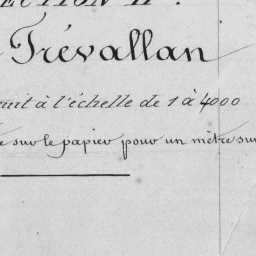 ECTION H
Trévallan
uit à l'échelle de 1 à 4000
sur le papier pour un mètre sur